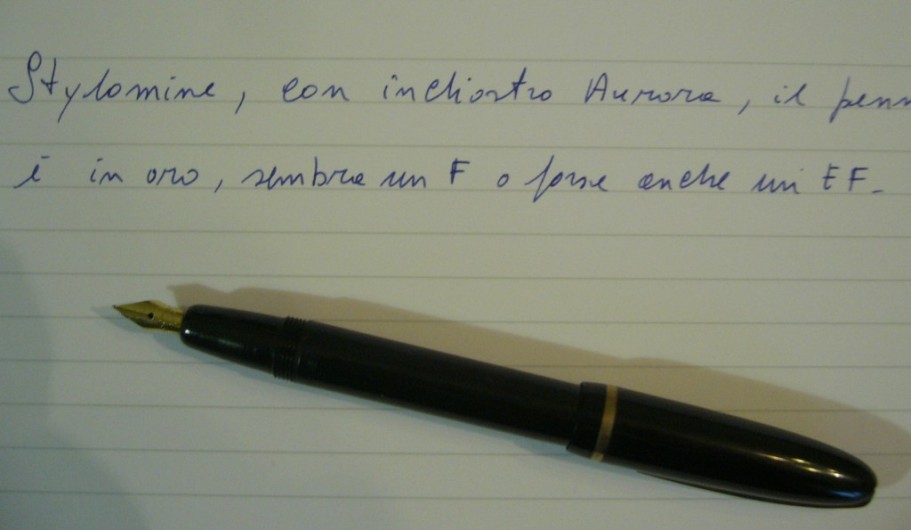 Stylomine, con inchiostro Aurora, il penn
è in oro, sembra un F o forse anche un EF.